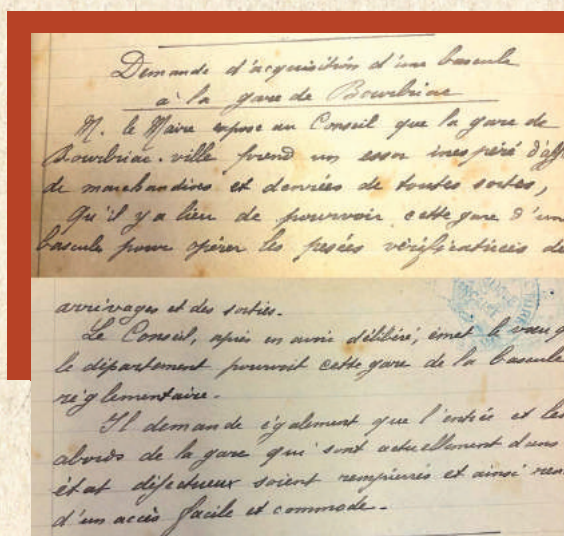 Demande d'acquisition d'une bascule
à la gare de Bourbriac
M. le Maire expose au Conseil que la gare de
Bourbriac-ville prend un essor inespéré d'aff
de marchandises et denrées de toutes sortes,
Qu'il y a lieu de pourvoir cette gare d'un
bascule pour opérer les pesées vérificatrices de
arrivages et des sorties.
Le Conseil, après en avoir délibéré, émet le vœu q
le département pourvoit cette gare de la bascule
réglementaire.
Il demande également que l'entrée et les
abords de la gare qui sont actuellement dans
état défectueux soient rempierrés et ainsi ren
d'un accès facile et commode.